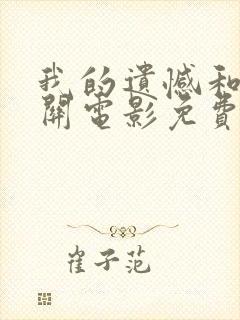 我的遗憾和
開電影免費
崔子范